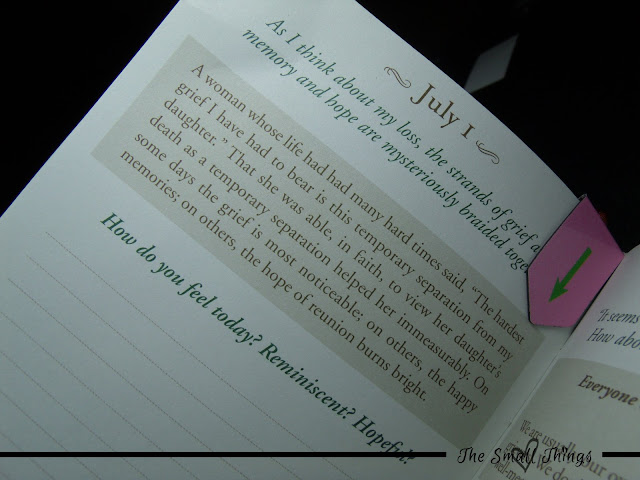 July 1
As I think about my loss, the strands of grief a
memory and hope are mysteriously braided toge
A woman whose life had had many hard times said, "The hardest
grief I have had to bear is this temporary separation from my
daughter." That she was able, in faith, to view her daughter's
death as a temporary separation helped her immeasurably. On
some days the grief is most noticeable; on others, the happy
memories; on others, the hope of reunion burns bright.
How do you feel today? Reminiscent? Hopeful?
"It seems
How abo
Everyone
We are usually our o
we do
well-me
The Small Things